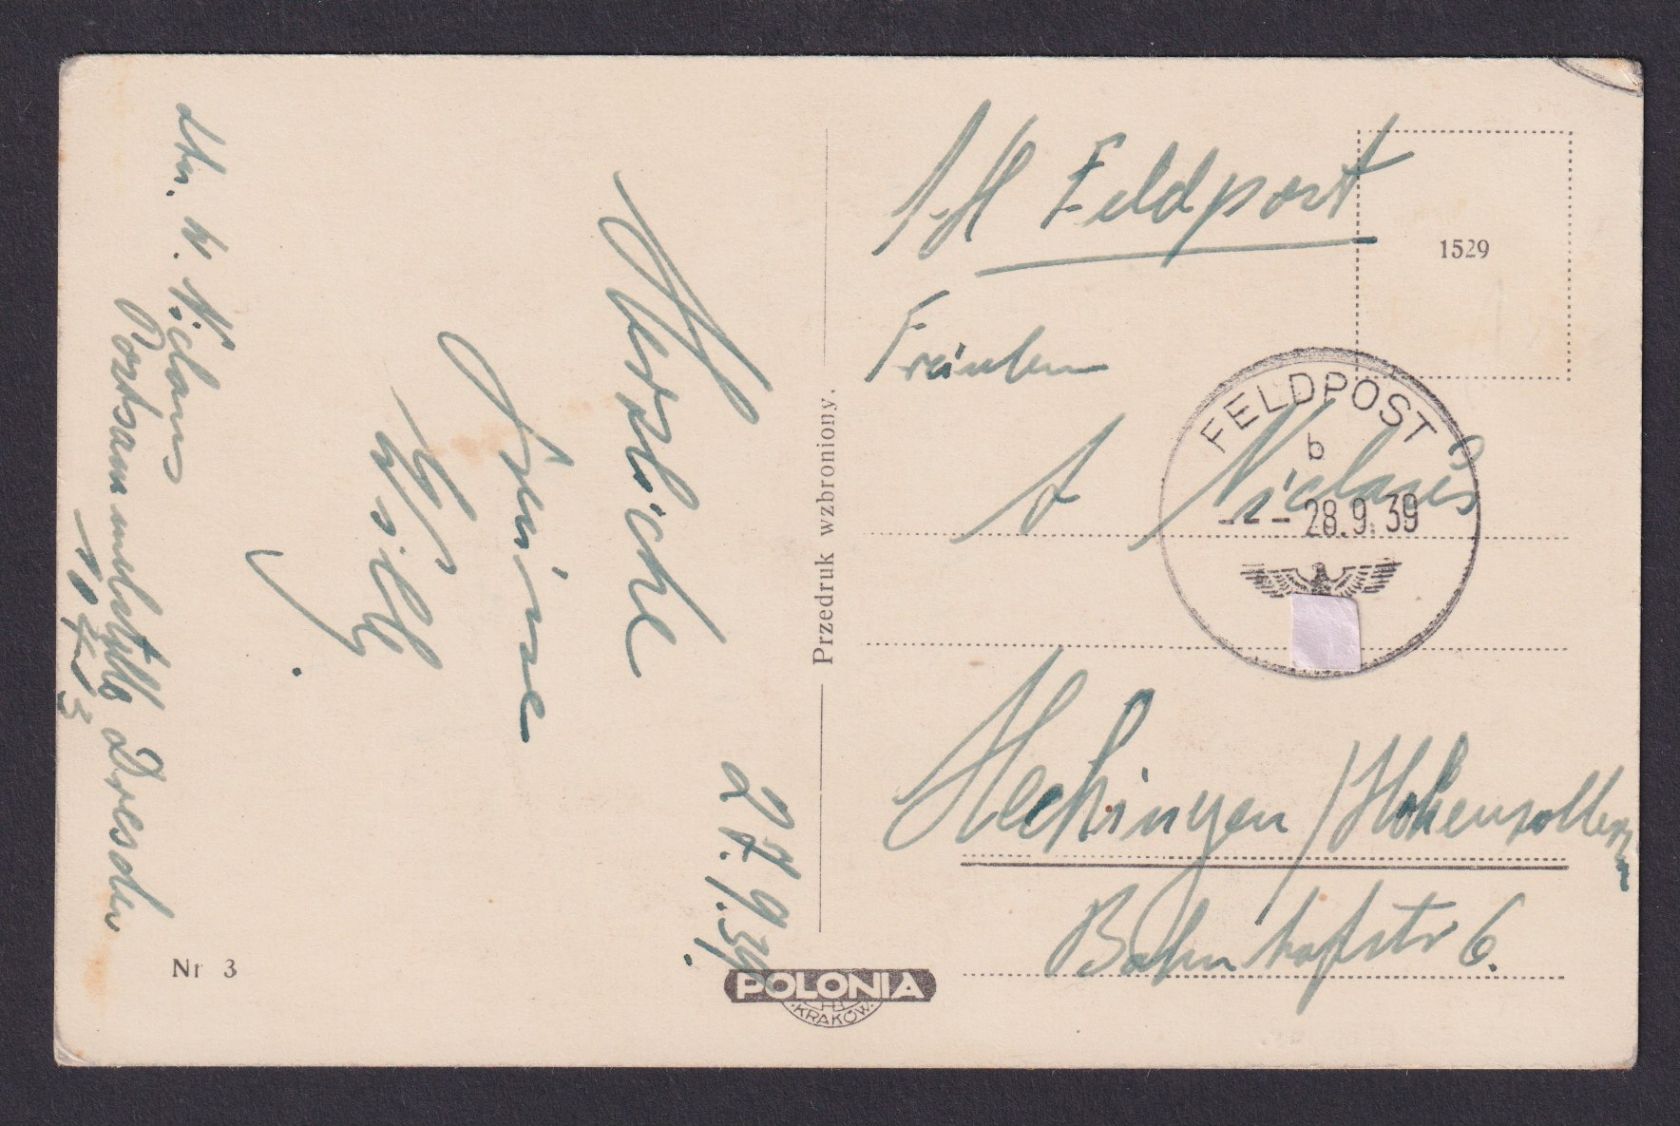 Feldpost
1529
Fräulein
A Niclaus
FELDPOST
b
--- 28.9.39
Hechingen / Hohenzollern
Bahnhofstr 6.
Przedruk wzbroniony.
27.9.39.
Herzliche
Grüsse
Willy
W. Niclaus
Postsammelstelle Dresden
Nr 3
POLONIA
KRAKÓW